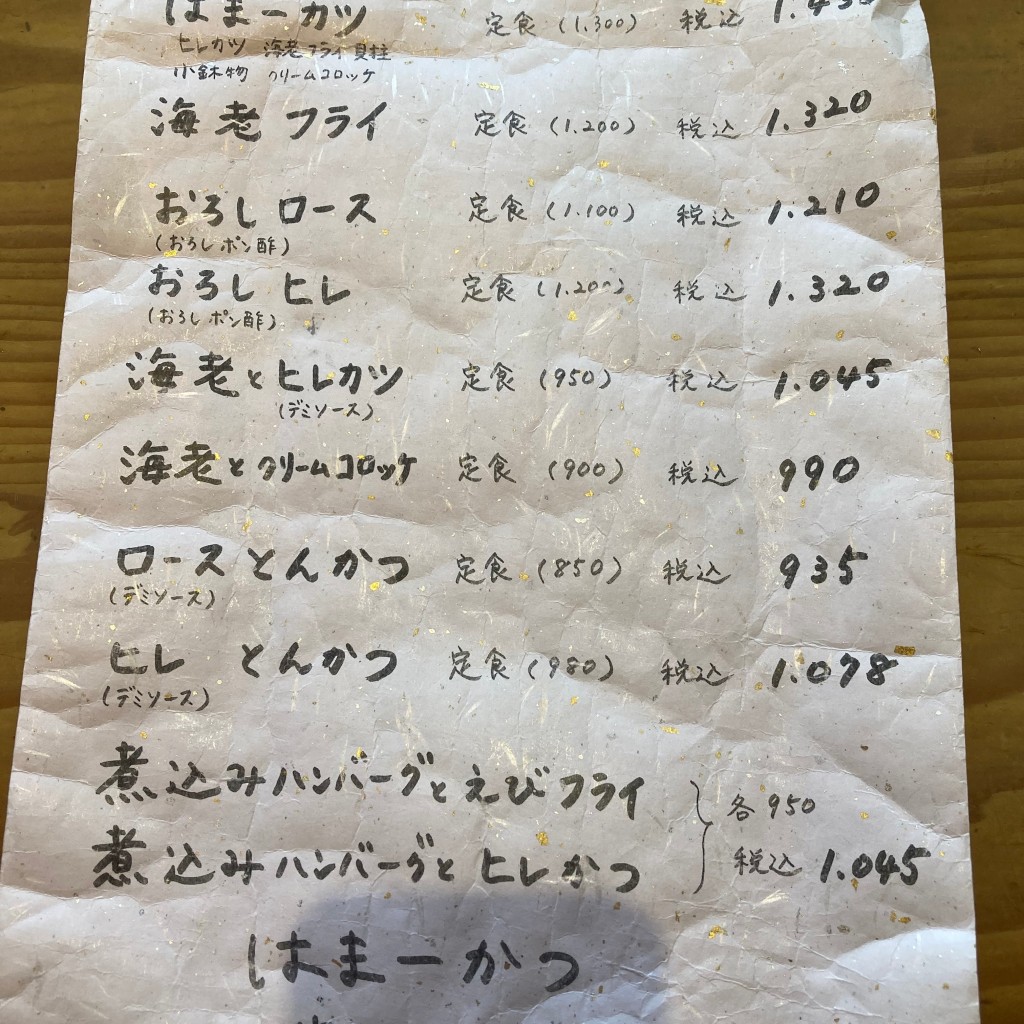 はまーカツ 定食 (1.300) 税込 1.430
ヒレカツ 海老フライ 貝柱
小鉢物 クリームコロッケ
海老フライ 定食 (1.200) 税込 1.320
おろしロース 定食 (1.100) 税込 1.210
(おろしポン酢)
おろしヒレ 定食 (1.200) 税込 1.320
(おろしポン酢)
海老とヒレカツ 定食 (950) 税込 1.045
(デミソース)
海老とクリームコロッケ 定食 (900) 税込 990
ロースとんかつ 定食 (850) 税込 935
(デミソース)
ヒレ とんかつ 定食 (980) 税込 1.078
(デミソース)
煮込みハンバーグとえびフライ
各 950
煮込みハンバーグとヒレかつ
税込 1.045
はまーかつ